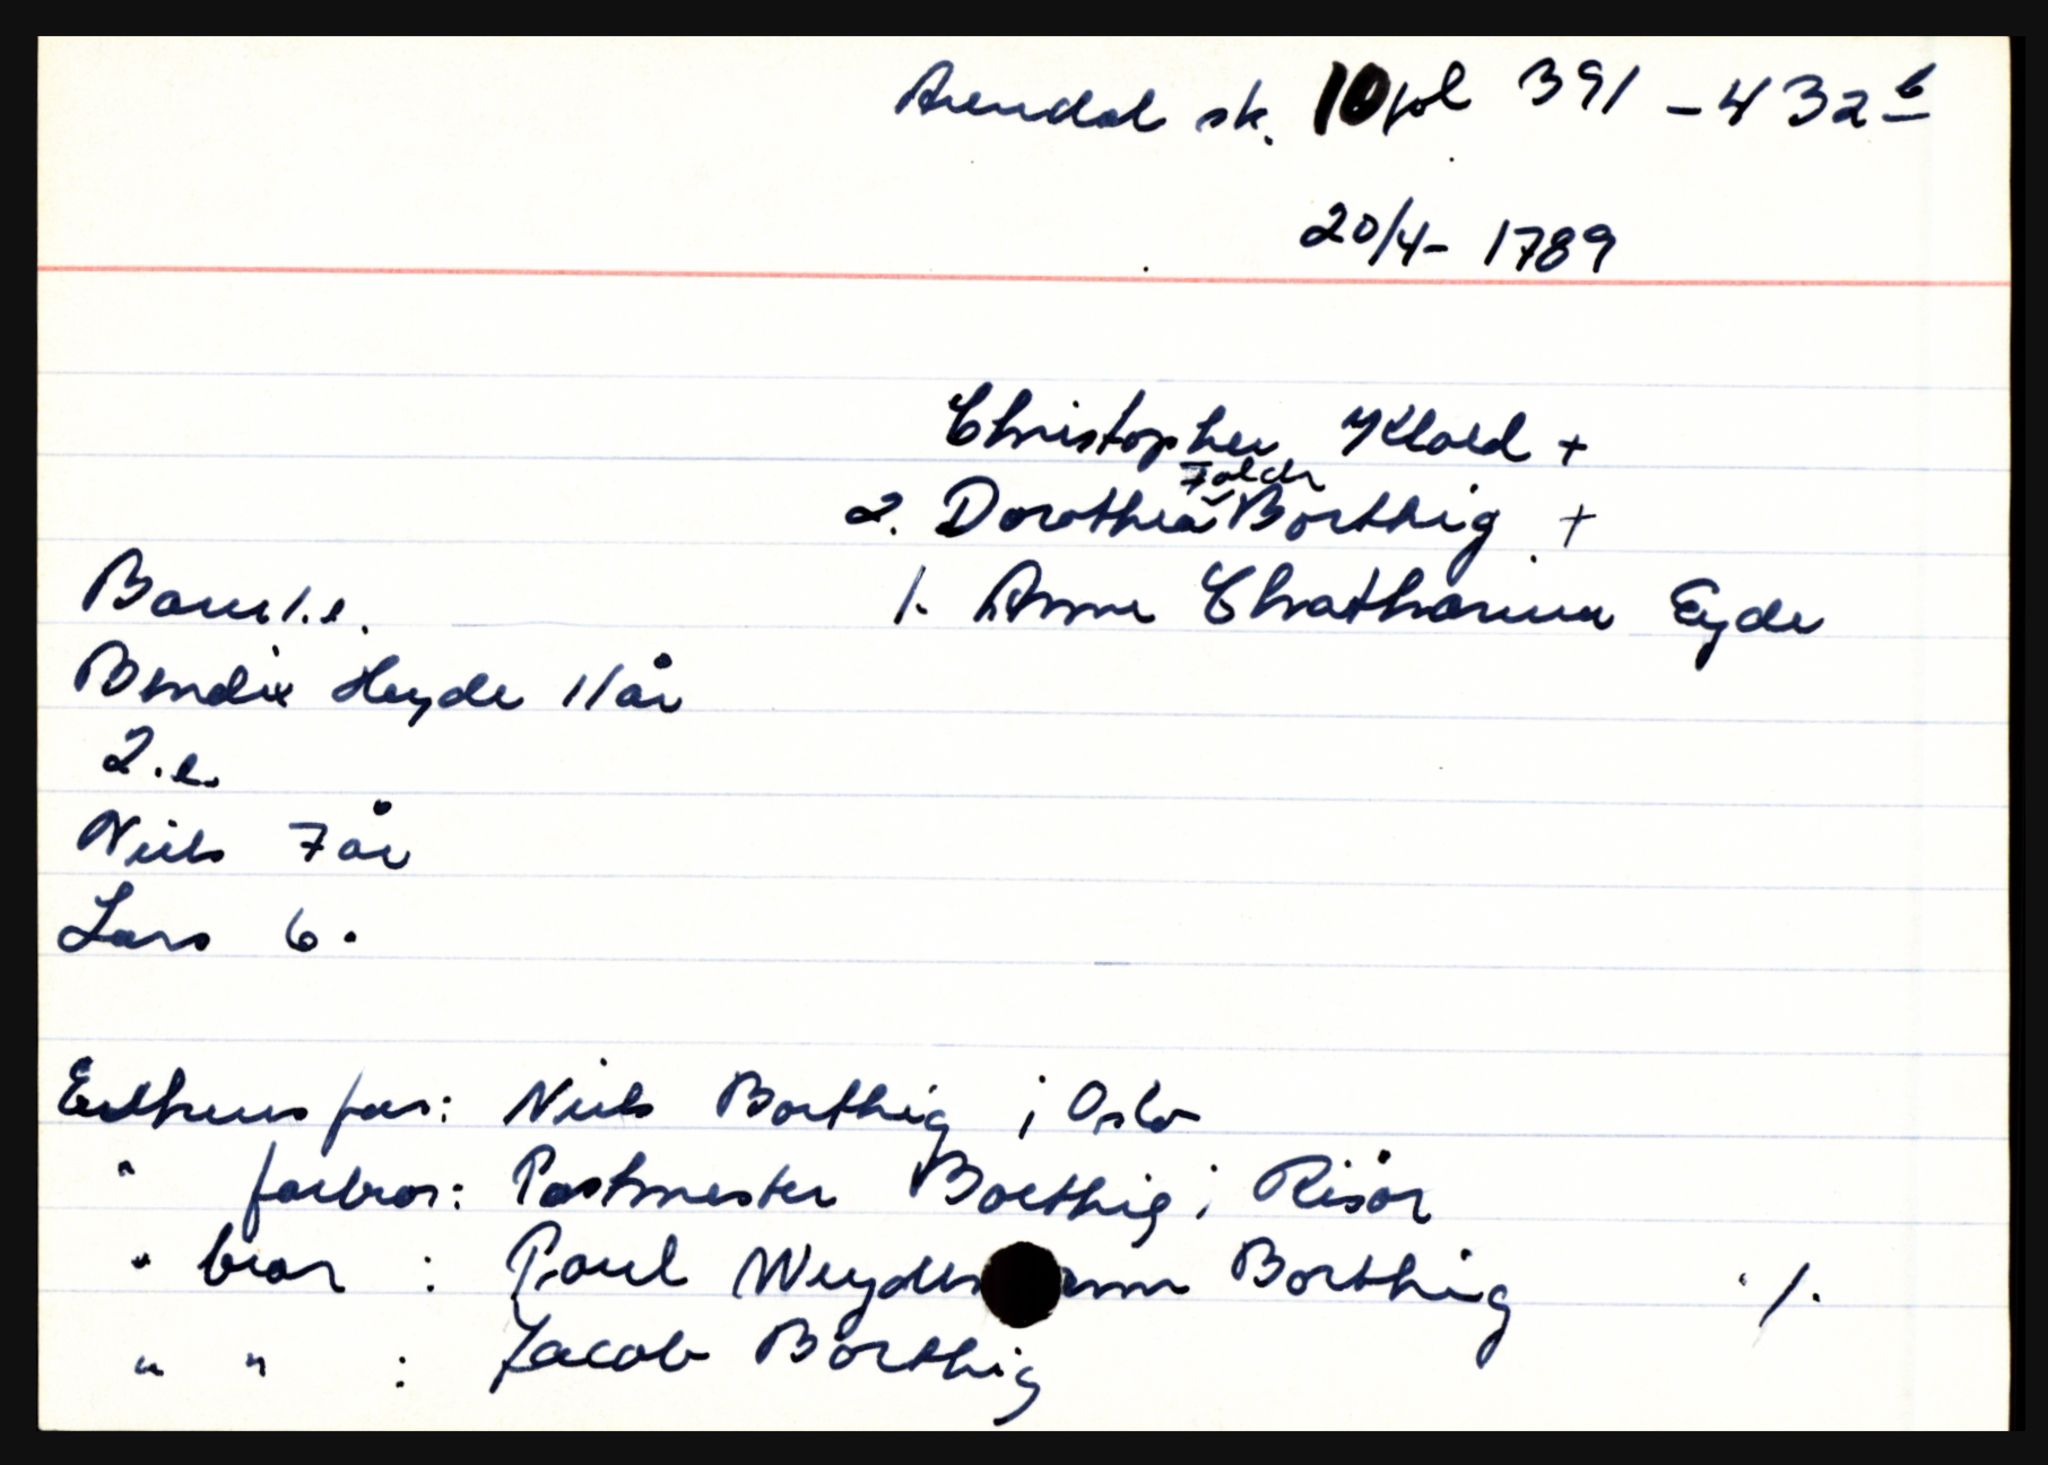 Arendal sk. 10 fol 391 - 432 b
20/4 - 1789
Christopher Kloed +
Foldr
2. Dorothea Borthig +
Barn 1.e.
1. Anne Chatharina Eyde
Bendix Heyde 11 år
2.e.
Niels 7 år
Lars 6 .
Enkens far: Niels Borthig i Oslo
" farbror: Postmester Borthig i Risör
" bror : Poul Weyde ann Borthig ./.
" " : Jacob Borthig